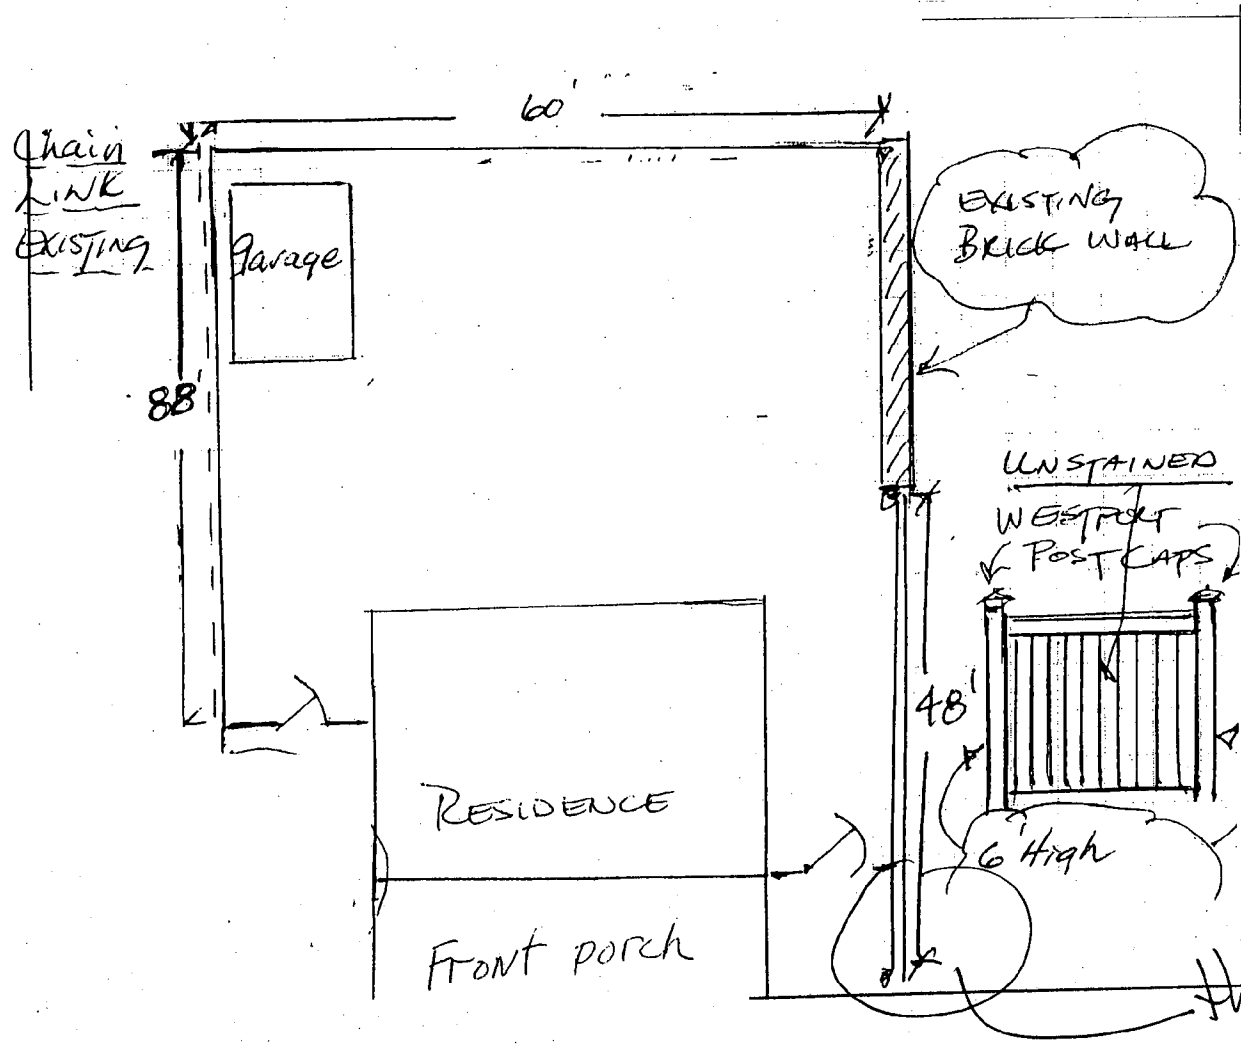 60'
Chain
LINK
EXISTING
Garage
EXISTING
BRICK WALL
88'
UNSTAINED
WESTPORT
POST CAPS
48'
RESIDENCE
6' High
Front porch